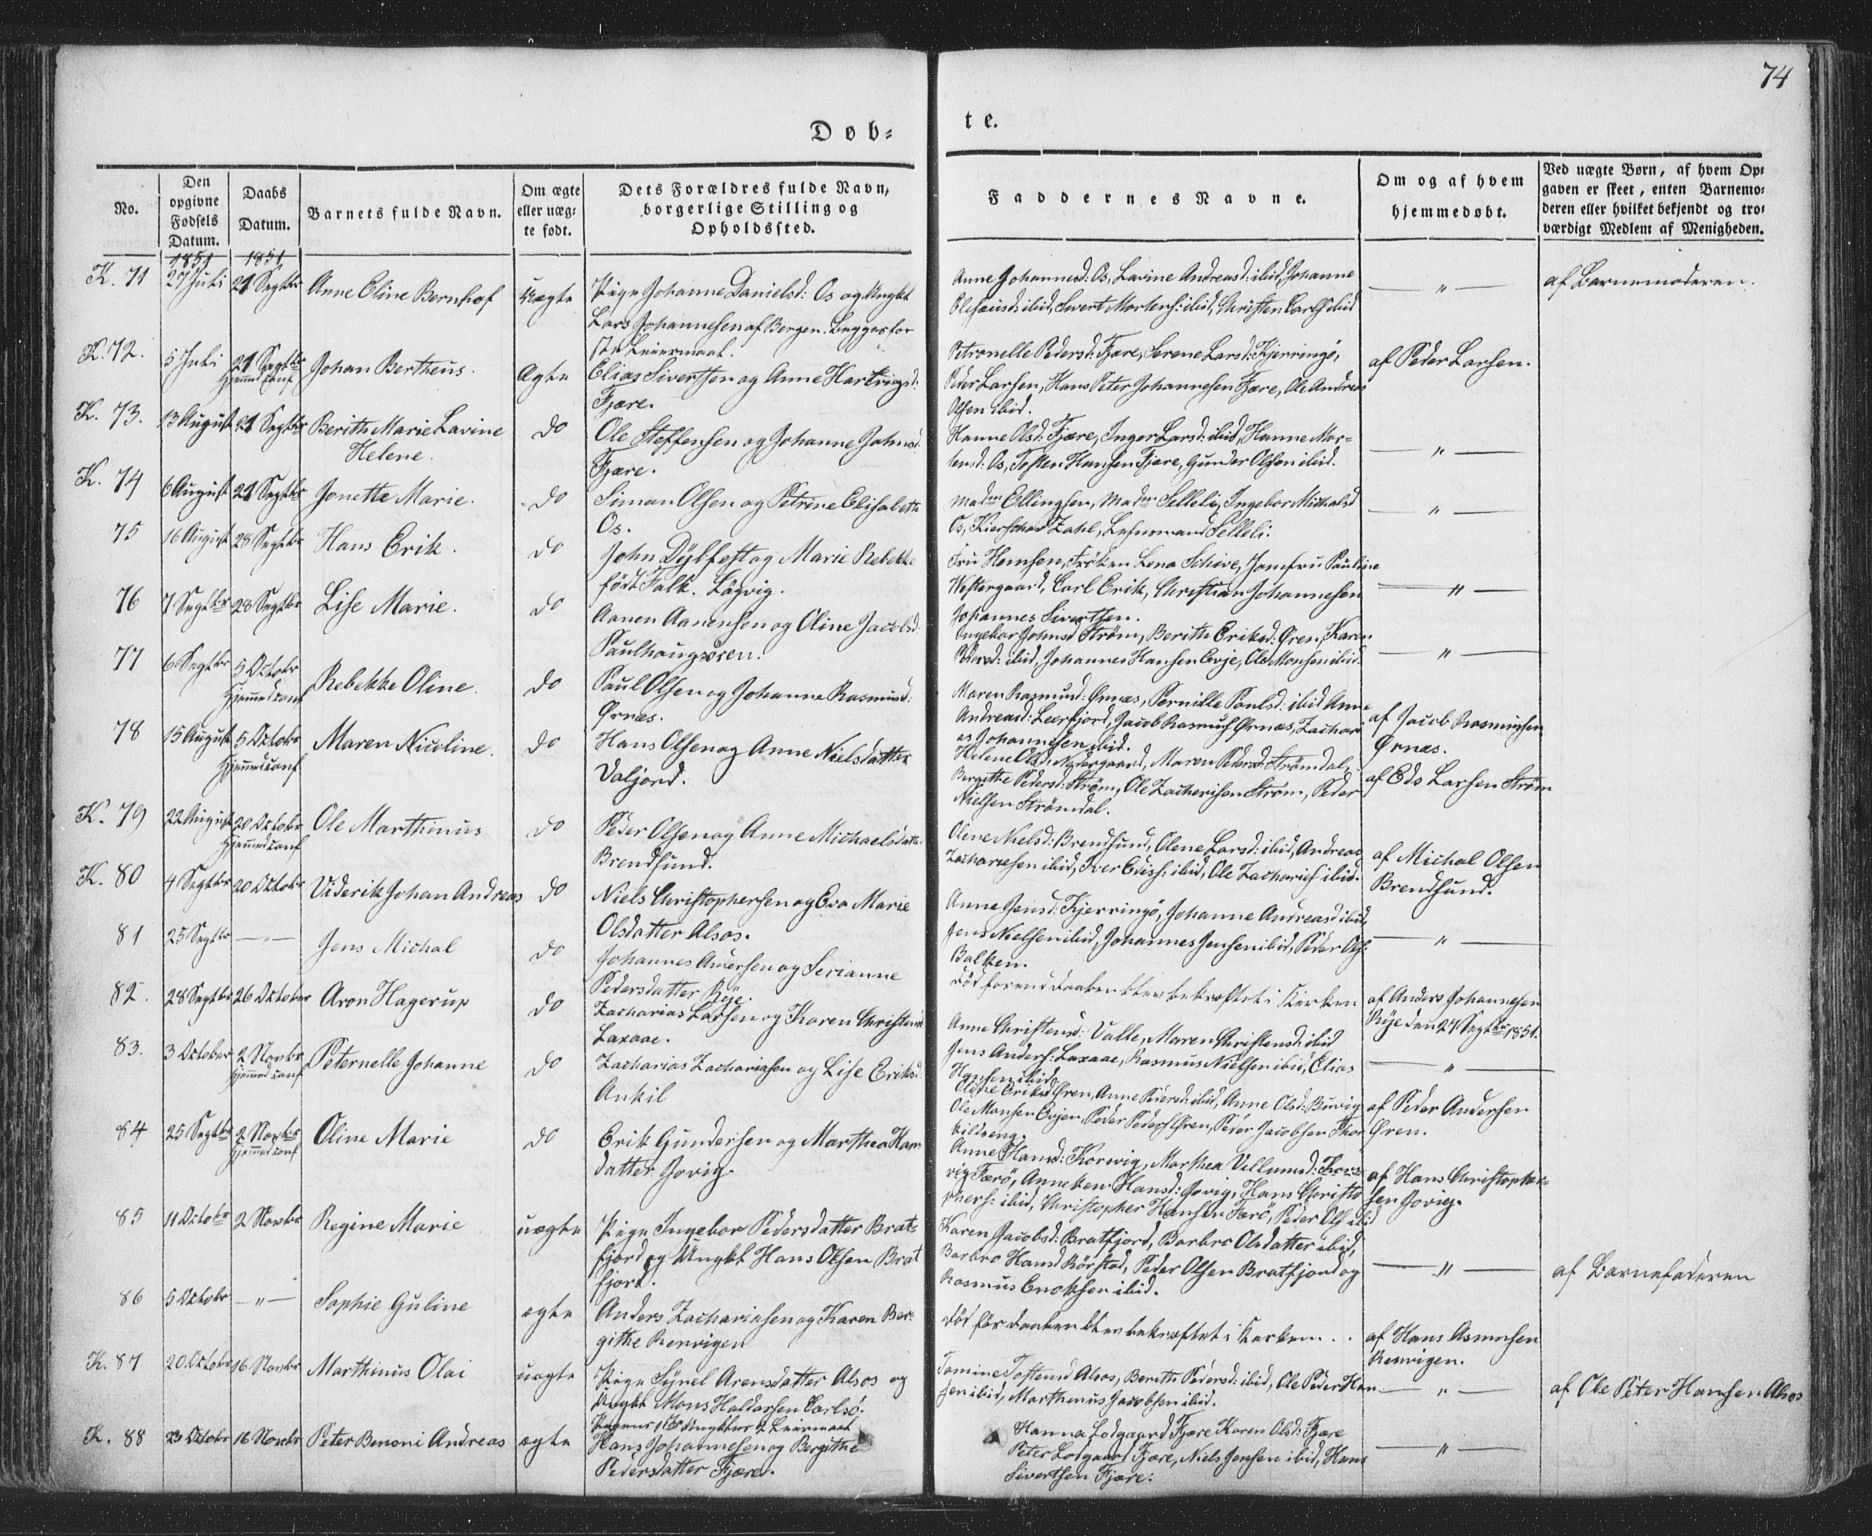 74
Døb=
te.
No.
Den opgivne Fødsels Datum.
Daabs Datum.
Barnets fulde Navn.
Om ægte eller uæg-te født.
Dets Forældres fulde Navn, borgerlige Stilling og Opholdssted.
Faddernes Navne.
Om og af hvem hjemmedøbt.
Ved uægte Børn, af hvem Op-
gaven er skeet, enten Barnemo-
deren eller hvilket bekjendt og tro-
værdigt Medlem af Menigheden.
1851 1851
K. 71 27 Juli 21 Septbr Anne Oline Bernhof Uægte
Pige Johanne Danielsd: Os og Ungkl
Lars Johannesen af Bergen. Begges for
ste Leiermaal.
Anne Johannesd: Os, Lavine Andreasd: ibid, Johanne
ibid, Sivert Mortens: ibid, Christen Carls ibid
— " — af Barnemoderen.
K. 72. 5 Juli 21 Septbr Hjemmed conf Johan Bertheus. Ægte
Elias Sivertsen og Anne Hartvigsd:
Fjære.
Petronelle Pedersd: Fjære, Serene Larsd: Kjerringø,
Peder Larsen, Hans Peter Johannesen Fjære, Ole Andreas
Olsen ibid.
af Peder Larsen.
K. 73. 13 August 21 Septbr Berith Marie Lavine
Helene. do
Ole Steffensen og Johanne Johnsd
Fjære.
Hanne Olsd: Fjære, Inger Larsd: ibid, Hanne Mor-
tensd: Os, Tosten Hansen Fjære, Gunder Olsen ibid.
— " —
K. 74 6 August 21 Septbr Jonette Marie. do
Simon Olsen og Petrine Elisabeth
Os.
Madm Ellingsen, Madm Selleli, Ingebor Michalsd
Os, Zahl, Lehnsmand Selleli.
— " —
75 16 August 28 Septbr Hans Erik. do
John Dybfest og Marie Rebekke
født Falk. Løgvig.
Fru Hemsen, Frøken Lena Schive, Jomfru Pauline
Westergaard, Carl Erik, Christian Johannesen
Johannes Sivertsen.
— " —
76 7 Septbr 28 Septbr Lise Marie. do
Aanen Aanensen og Oline Jacobsd:
Paulhaugsøren.
Ingebor Johnsd Strøm, Berith Eriksd: Øren, Karen
ibid, Johannes Hansen Evje, Ole Monsen ibid
— " —
77 6 Septbr 5 Octobr Hjemmed conf Rebekke Oline. do
Paul Olsen og Johanne Rasmusd:
Ørnæs.
Maren Rasmusd: Ørnæs, Pernille Paulsd: ibid Anne
Andreasd: Leerfjord, Jacob Rasmus Ørnæs, Zachari
as Johannesen ibid.
af Jacob Rasmusen
Ørnæs.
78 15 August 5 Octobr Hjemmed conf Maren Nicoline. do
Hans Olsen og Anne Nielsdatter
Valjord.
Helene Olsd: Nedergaard, Maren Pedersd: Strømdal,
Bergithe Pedersd: Strøm, Ole Zacharisen Strøm, Peder
Nielsen Strømdal.
af Eds Larsen Strøm
K. 79 22 August 20 Octobr Hjemmed conf Ole Marthinus do
Peder Olsen og Anne Michaelsdatter
Brendsund.
Olene Nielsd: Brendsund, Olene Larsd: ibid, Andreas
Zachariesen ibid, Iver ibid, Ole Zacharies ibid.
af Michal Olsen
Brendsund.
K. 80 4 Septbr 20 Octobr Viderik Johan Andreas do
Niels Christophersen og Eva Marie
Olsdatter Alsos.
Anne Jensd: Kjerringø, Johanne Andreasd ibid,
Jens Nielsen ibid, Johannes Jensen ibid, Peder Ols:
Balken.
— " —
81 25 Septbr — " — Jens Michal do
Johannes Andersen og Serianne
Pedersdatter Røe.
død forend daaben blev bekræftet i Kirken
af Anders Johannesen
Røe den 27 Septbr 1851.
82. 28 Septbr 26 October Aron Hagerup do
Zacharias Larsen og Karen Christensd
Laxaae.
Anne Christensd: Valle, Maren Christensd: ibid
Jens Anders: Laxaae, Rasmus Nielsen ibid, Elias
Hansen ibid.
— " —
83. 3 October 2 Novbr Hjemmed conf Peternelle Johanne do
Zacharias Zachariasen og Lise Eriksd:
Ankil
Olene Eriksd Øren, Anne Pedersd: ibid, Anne Olsd: Buvig
Ole Monsen Evjen, Peder Peders Øren, Peder Jacobsen

af Peder Andersen
Øren.
84 25 Septbr 2 Novbr Hjemmed conf Oline Marie do
Erik Gundersen og Marthea Hans
datter Govig.
Anne Hansd: Korsvig, Marthea Vellumsd: Kors-
vig Færø, Anneken Hansd: Govig, Hans Christo
phers: ibid, Christopher Hansen Færø, Peder Ols ibid
af Hans Christopher-
sen Govig.
85 11 Octobr 2 Novbr Regine Marie uægte
Pige Ingebor Pedersdatter Brat-
fjord og Ungkl Hans Olsen Brat
fjord.
Karen Jacobsd: Bratfjord, Barbro Olsdatter ibid,
Barbro Hansd Børstad, Peder Olsen Bratfjord og
Rasmus Enoksen ibid.
— " — af Barnefaderen
86 5 Octobr — " — Sophie Guline ægte
Anders Zachariasen og Karen Ber-
githe Renvigen
død før daaben blev bekræftet i Kirken. .
af Hans Asmusen
Renvigen.
K. 87 20 Octobr 16 Novbr Marthinus Olai uægte
Pige Synel Arensdatter Alsos og
Ungkl Mons Haldorsen Carlsø.
Pigens 1ste Ungklens 2 Leiermaal
Tomine Tostensd Alsos, Berith Pedersd: ibid, Ole Peder Han
sen ibid, Marthinus Jacobsen ibid.
— " — af Ole Peter Hansen Alsos
K. 88 23 Octobr 16 Novbr Peter Benoni Andreas ægte
Hans Johannesen og Bergithe
Pedersdatter Fjære.
Hanna Lodgaard Fjære Karen Olsd: Fjære
Peter Lodgaard Fjære, Niels Jensen ibid, Hans
Sivertsen Fjære.
— " —